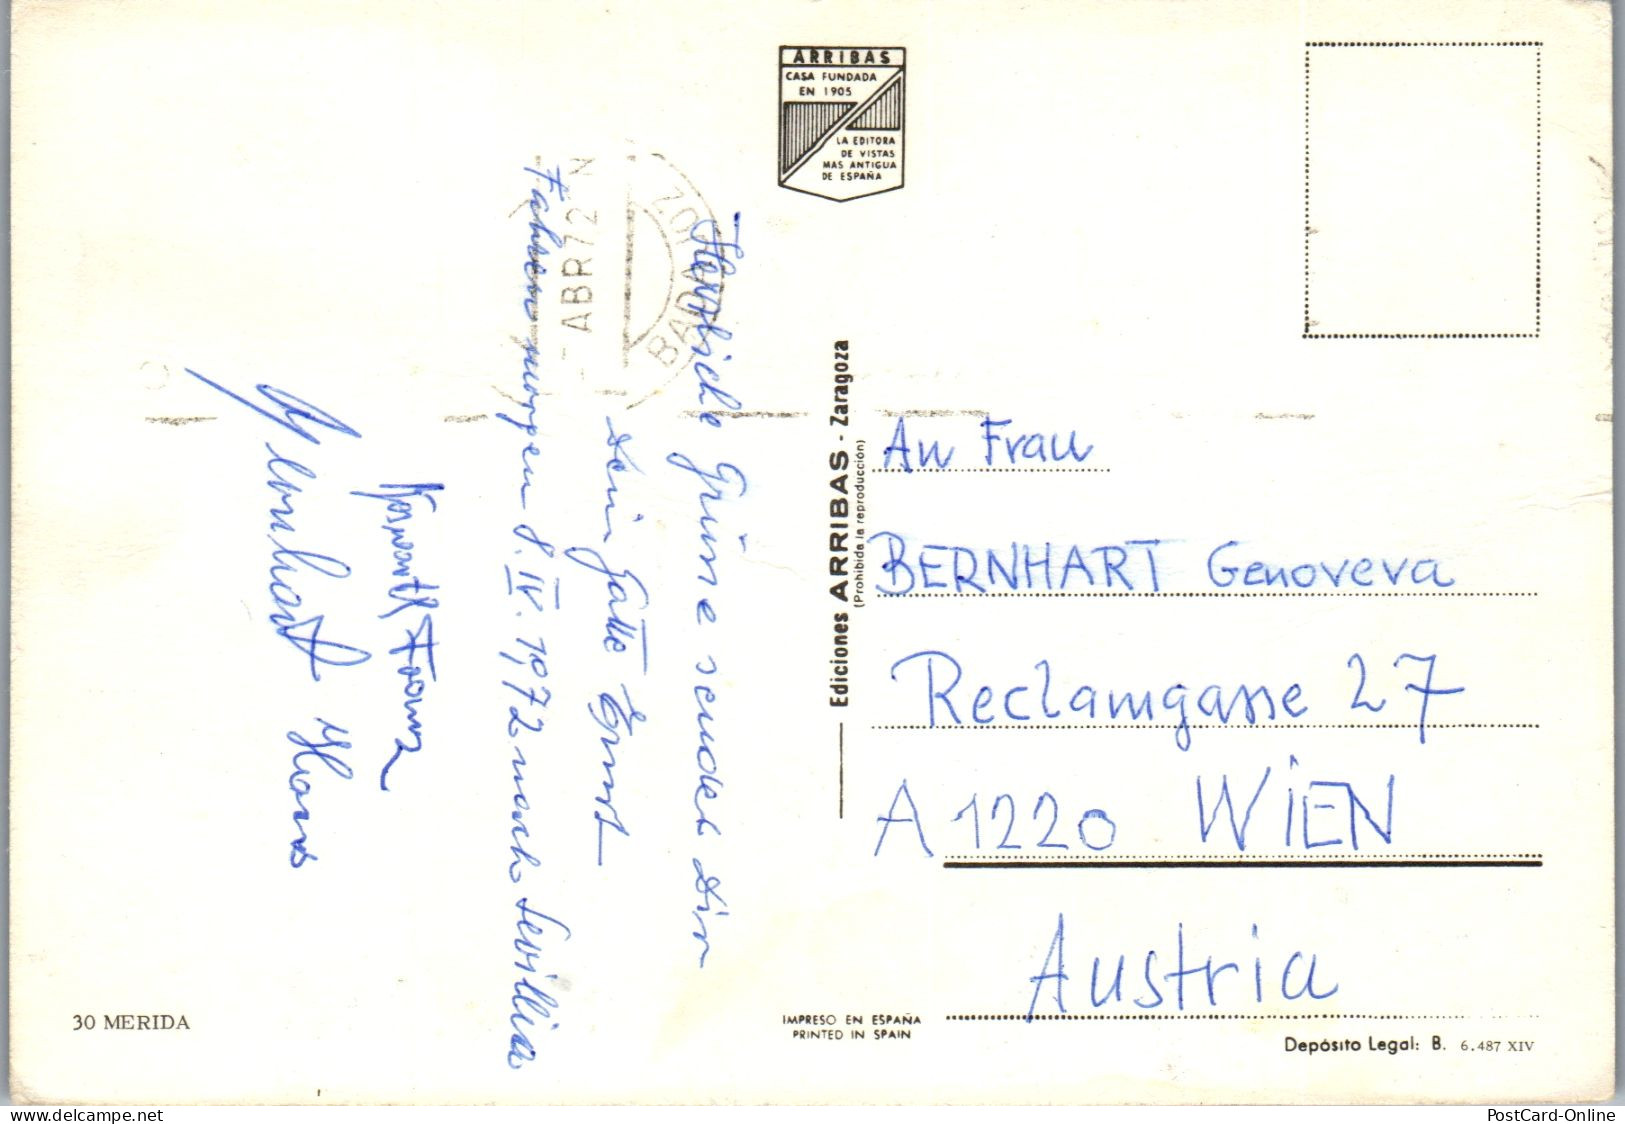 ARRIBAS
CASA FUNDADA
EN 1905
LA EDITORA
DE VISTAS
MAS ANTIGUA
DE ESPAÑA
BADAJOZ
ABR 72 N
Herzliche Grüße sendet Dir
Dein Gatte Ernst
Fahren morgen 8. IV. 1972 nach Sevillia
Franz
Hans
Ediciones ARRIBAS - Zaragoza
(Prohibida la reproducción)
An Frau
BERNHART Genoveva
Reclamgasse 27
A 1220 WIEN
Austria
30 MERIDA
IMPRESO EN ESPAÑA
PRINTED IN SPAIN
Depósito Legal: B. 6.487 XIV
delcampe.net
PostCard-Online